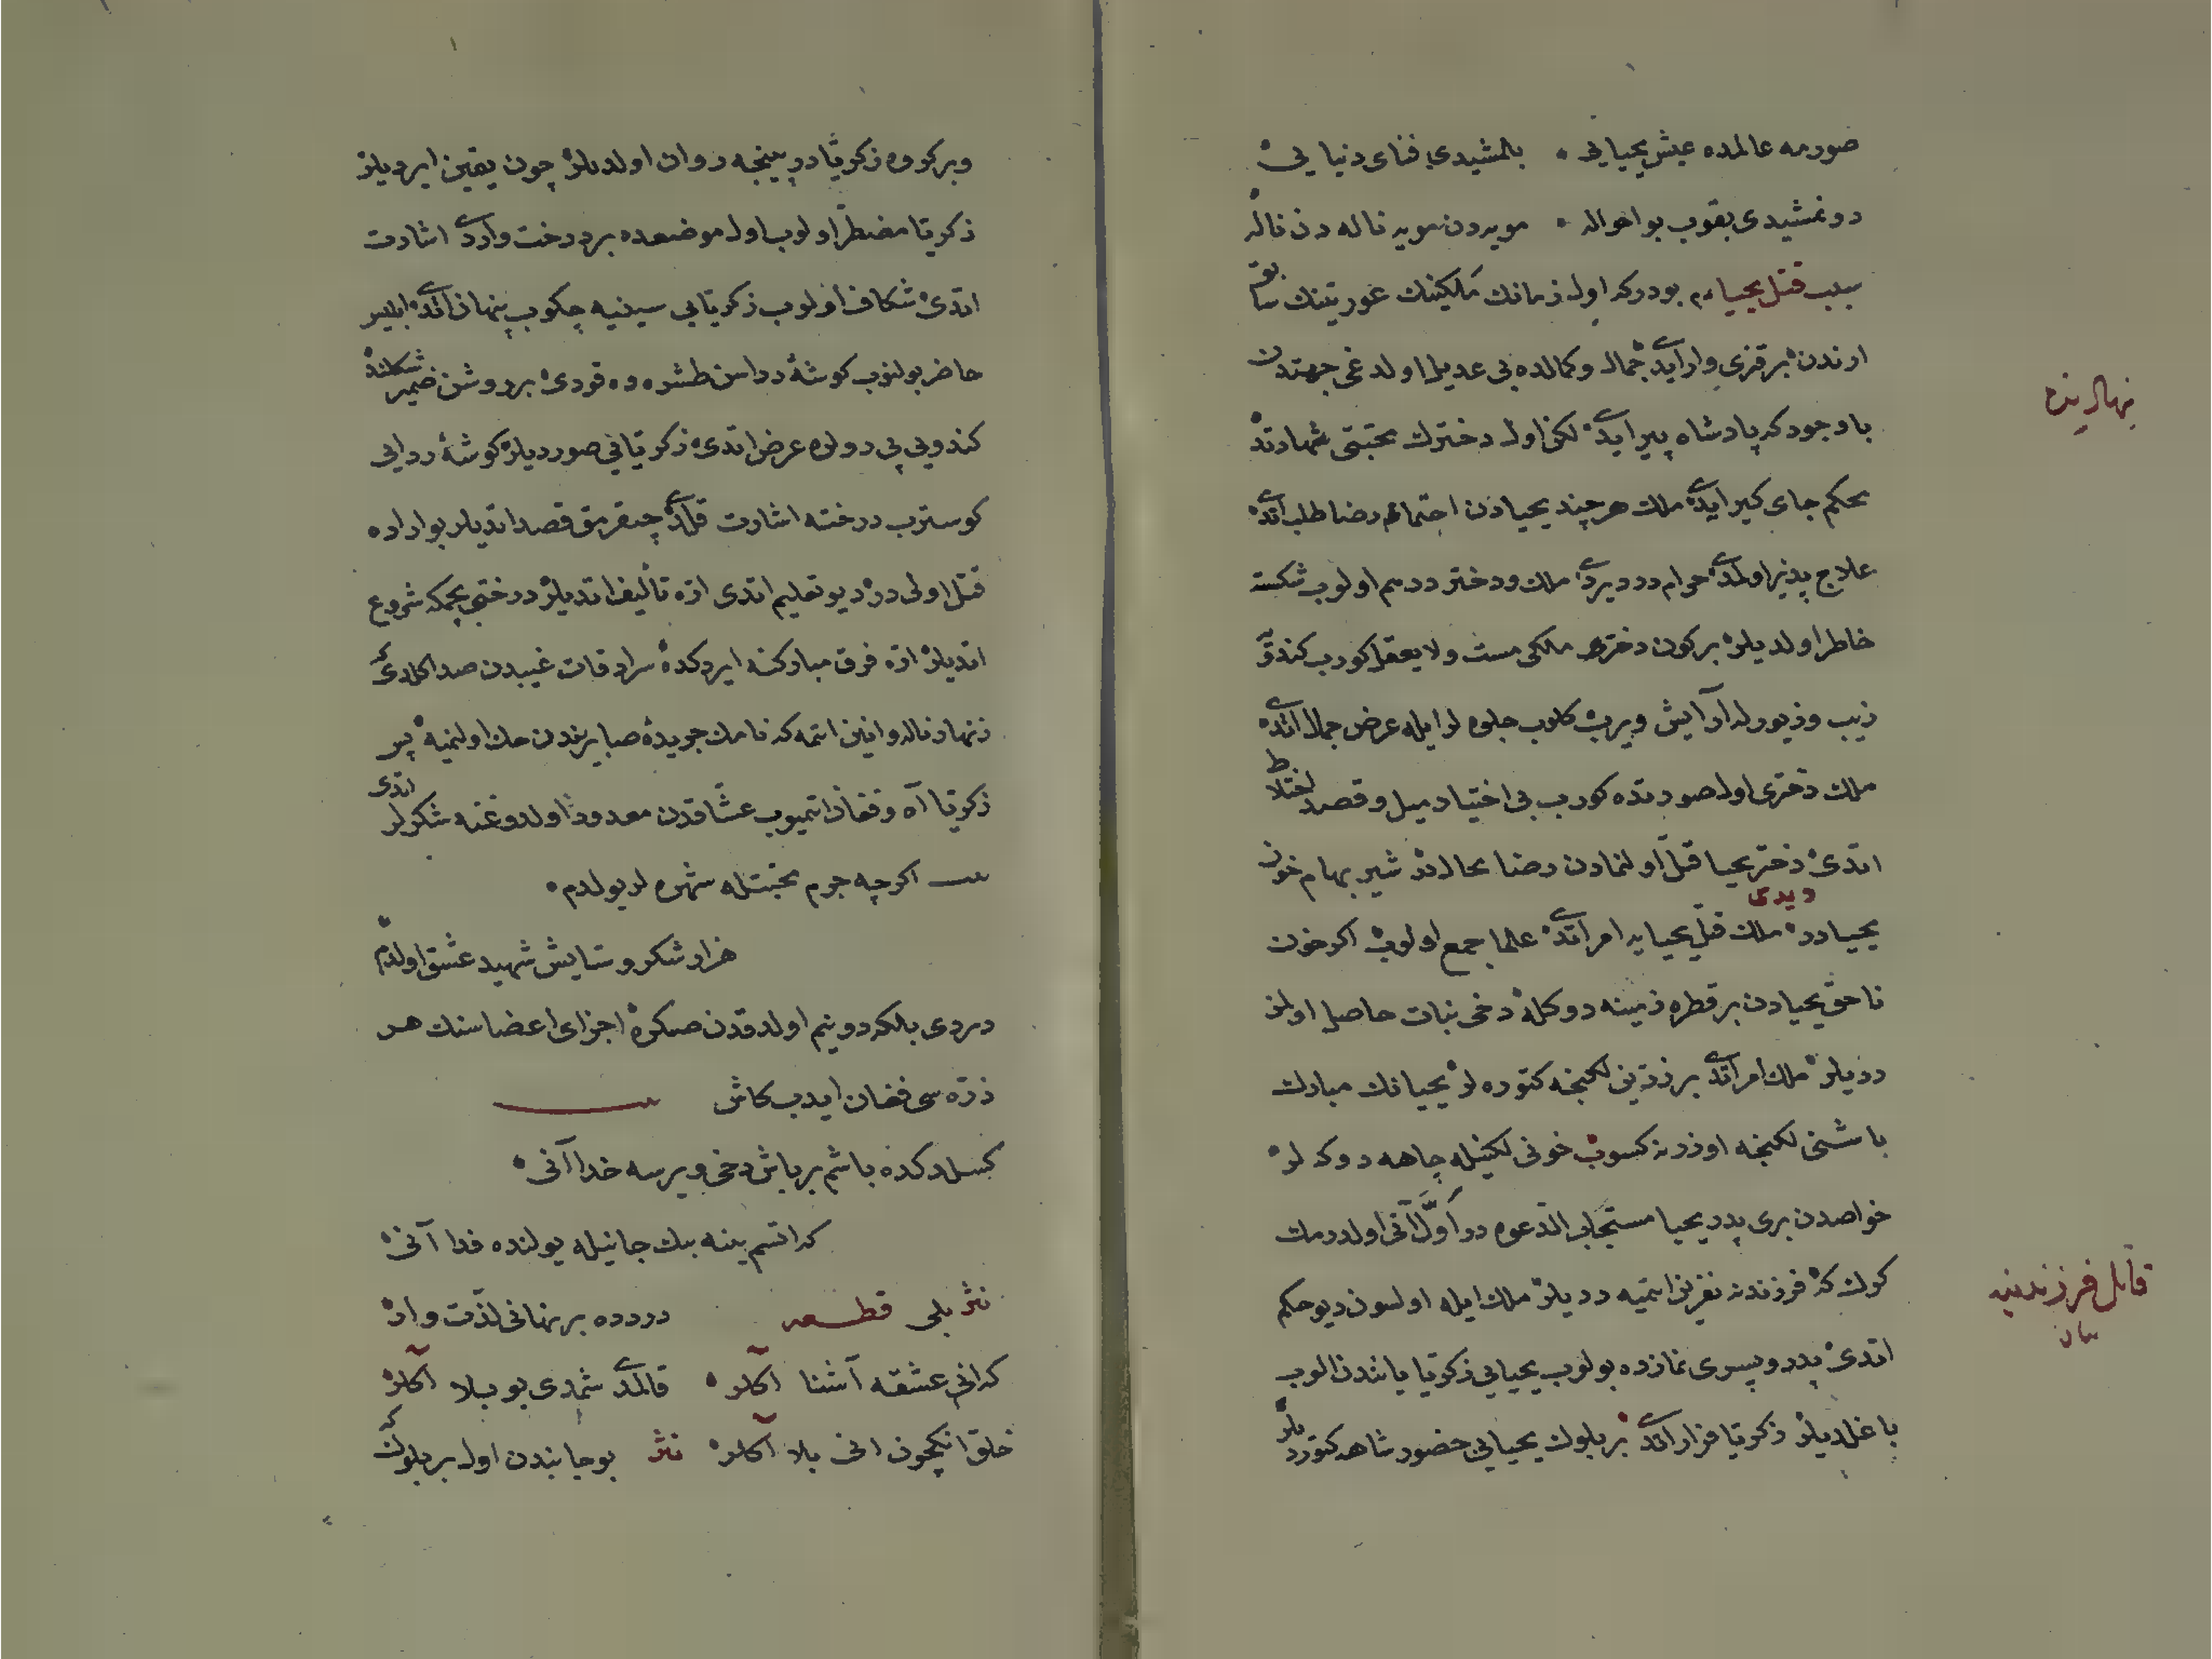 صورمه عالمده عیش یحیایی • بلمشیدی فنای دنیایی
دونمشیدی بقوب بو احواله • مویه دن مویه ناله دن ناله
سبب قتل یحیا ع م بودر که اول زمانك ملکینك عورتینك سابق
ارندن بر قزی وار ایدی جمال و کمالده بی عدیل اولدغی جهتدن
باوجود که پادشاه پیر ایدی لکن اول دخترك محبتی
محکم جای کیر ایدی ملك هر چند یحیادن رضا طلب اتدی
علاج پذیر اولمدی حرام در دیردی ملك و دختر درهم اولوب شکسته
خاطر اولدیلر بر کون دختر ملکی مست و لا یعقل کورب کندو
زیب و زیورله آرایش ویرب کلوب جلوه لر ایله عرض جمال اتدی
ملك دختری اول صورتده کورب بی اختیار میل و قصد اختلاط
اتدی دختر یحیا قتل اولنمادن رضا محالدر شیر بهام خون
یحیادر دیدی ملك قتل یحیایه امر اتدی علما جمع اولوب اکر خون
ناحق یحیادن بر قطره زمینه دوکله دخی نبات حاصل اولمز
ددیلر ملك امر اتدی بر زرین لکنجه کتوره لر یحیانك مبارك
باشنی لکنجه اوزرنه کسوب خونی لکنیله چاهه دوکه لر
خواصدن بری پدر یحیا مستجاب الدعوه در اول آنی اولدرمك
کرك که فرزندنه نفرین اتمیه ددیلر ملك ایله اولسون دیو حکم
اتدی پدر و پسری نمازده بولوب یحیایی زکریا یانندن الوب
باغلدیلر زکریا فرار اتدی بر بلوك یحیایی حضور شاهه کتوردیلر
قاتل فرزندینه
و بر کروه زکریا در پینجه روان اولدیلر چون یقین ایردیلر
زکریا مضطر اولوب اول موضعده بر درخت واردی اشارت
اتدی شکاف اولوب زکریایی سینیه چکوب پنهان اتدی ابلیس
حاضر بولنوب کوشۀ رداسن طشره ده قودی بر روشن ضمیر شکلنده
کندویی بی دولره عرض اتدی زکریایی صوردیلر کوشۀ ردایی
کوسترب درخته اشارت قلدی چقرمق قصد اتدیلر بو اراده
قتل اولی در دیو تعلیم اتدی اره تألیف اتدیلر درختی بچمکه شروع
اتدیلر اره فرق مبارکنه ایردکده سرادقات غیبدن صدا کلدی که
زنهار ناله و انین اتمه که نامك جریدۀ صابریندن حك اولنمیه پس
زکریا آه و فغان اتمیوب عشاقدن معدود اولدوغنه شکرلر اتدی
اکرچه جرم محبتله شهره لر بولدم •
هزار شکر و ستایش شهید عشق اولدم
دردی بلکه دو نیم اولدقدن صکره اجزای اعضاسنك هر
ذره سی فغان ایدب کاش
کسلدکده باشم بر باش دخی ویرسه خدا آنی
که اتسم ینه بیك جانیله یولنده فدا آنی
نثر بلی قطعه دردده بر نهانی لذت وار
که انی عشقه آشنا آکلر • قالمدی شمدی بو بلا آکلر
خلق انکچون انی بلا آکلر نثر بو جانبدن اول بر بلوك که